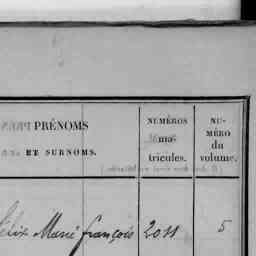 PRÉNOMS
ET SURNOMS.
NUMÉROS
ma-
tricules.
NU-
MÉRO
du
volume.
félix Marie françois 2011 5